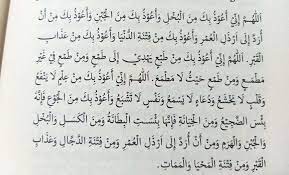 اَللّٰهُمَّ إِنِّيْ أَعُوْذُ بِكَ مِنَ الْبُخْلِ وَأَعُوْذُ بِكَ مِنَ الْجُبْنِ وَأَعُوْذُ بِكَ مِنْ أَنْ
أُرَدَّ إِلَى أَرْذَلِ الْعُمُرِ وَأَعُوْذُ بِكَ مِنْ فِتْنَةِ الدُّنْيَا وَأَعُوْذُ بِكَ مِنْ عَذَابِ
الْقَبْرِ. اَللّٰهُمَّ إِنِّيْ أَعُوْذُ بِكَ مِنْ طَمَعٍ يَهْدِيْ إِلَى طَبَعٍ وَمِنْ طَمَعٍ فِيْ غَيْرِ
مَطْمَعٍ وَمِنْ طَمَعٍ حَيْثُ لَا مَطْمَعَ. اَللّٰهُمَّ إِنِّيْ أَعُوْذُ بِكَ مِنْ عِلْمٍ لَا يَنْفَعُ
وَقَلْبٍ لَا يَخْشَعُ وَدُعَاءٍ لَا يُسْمَعُ وَنَفْسٍ لَا تَشْبَعُ وَأَعُوْذُ بِكَ مِنَ الْجُوْعِ فَإِنَّهُ
بِئْسَ الضَّجِيْعُ وَمِنَ الْخِيَانَةِ فَإِنَّهَا بِئْسَتِ الْبِطَانَةُ وَمِنَ الْكَسَلِ وَالْبُخْلِ
وَالْجُبْنِ وَالْهَرَمِ وَمِنْ أَنْ أُرَدَّ إِلَى أَرْذَلِ الْعُمُرِ وَمِنْ فِتْنَةِ الدَّجَّالِ وَعَذَابِ
الْقَبْرِ وَمِنْ فِتْنَةِ الْمَحْيَا وَالْمَمَاتِ.